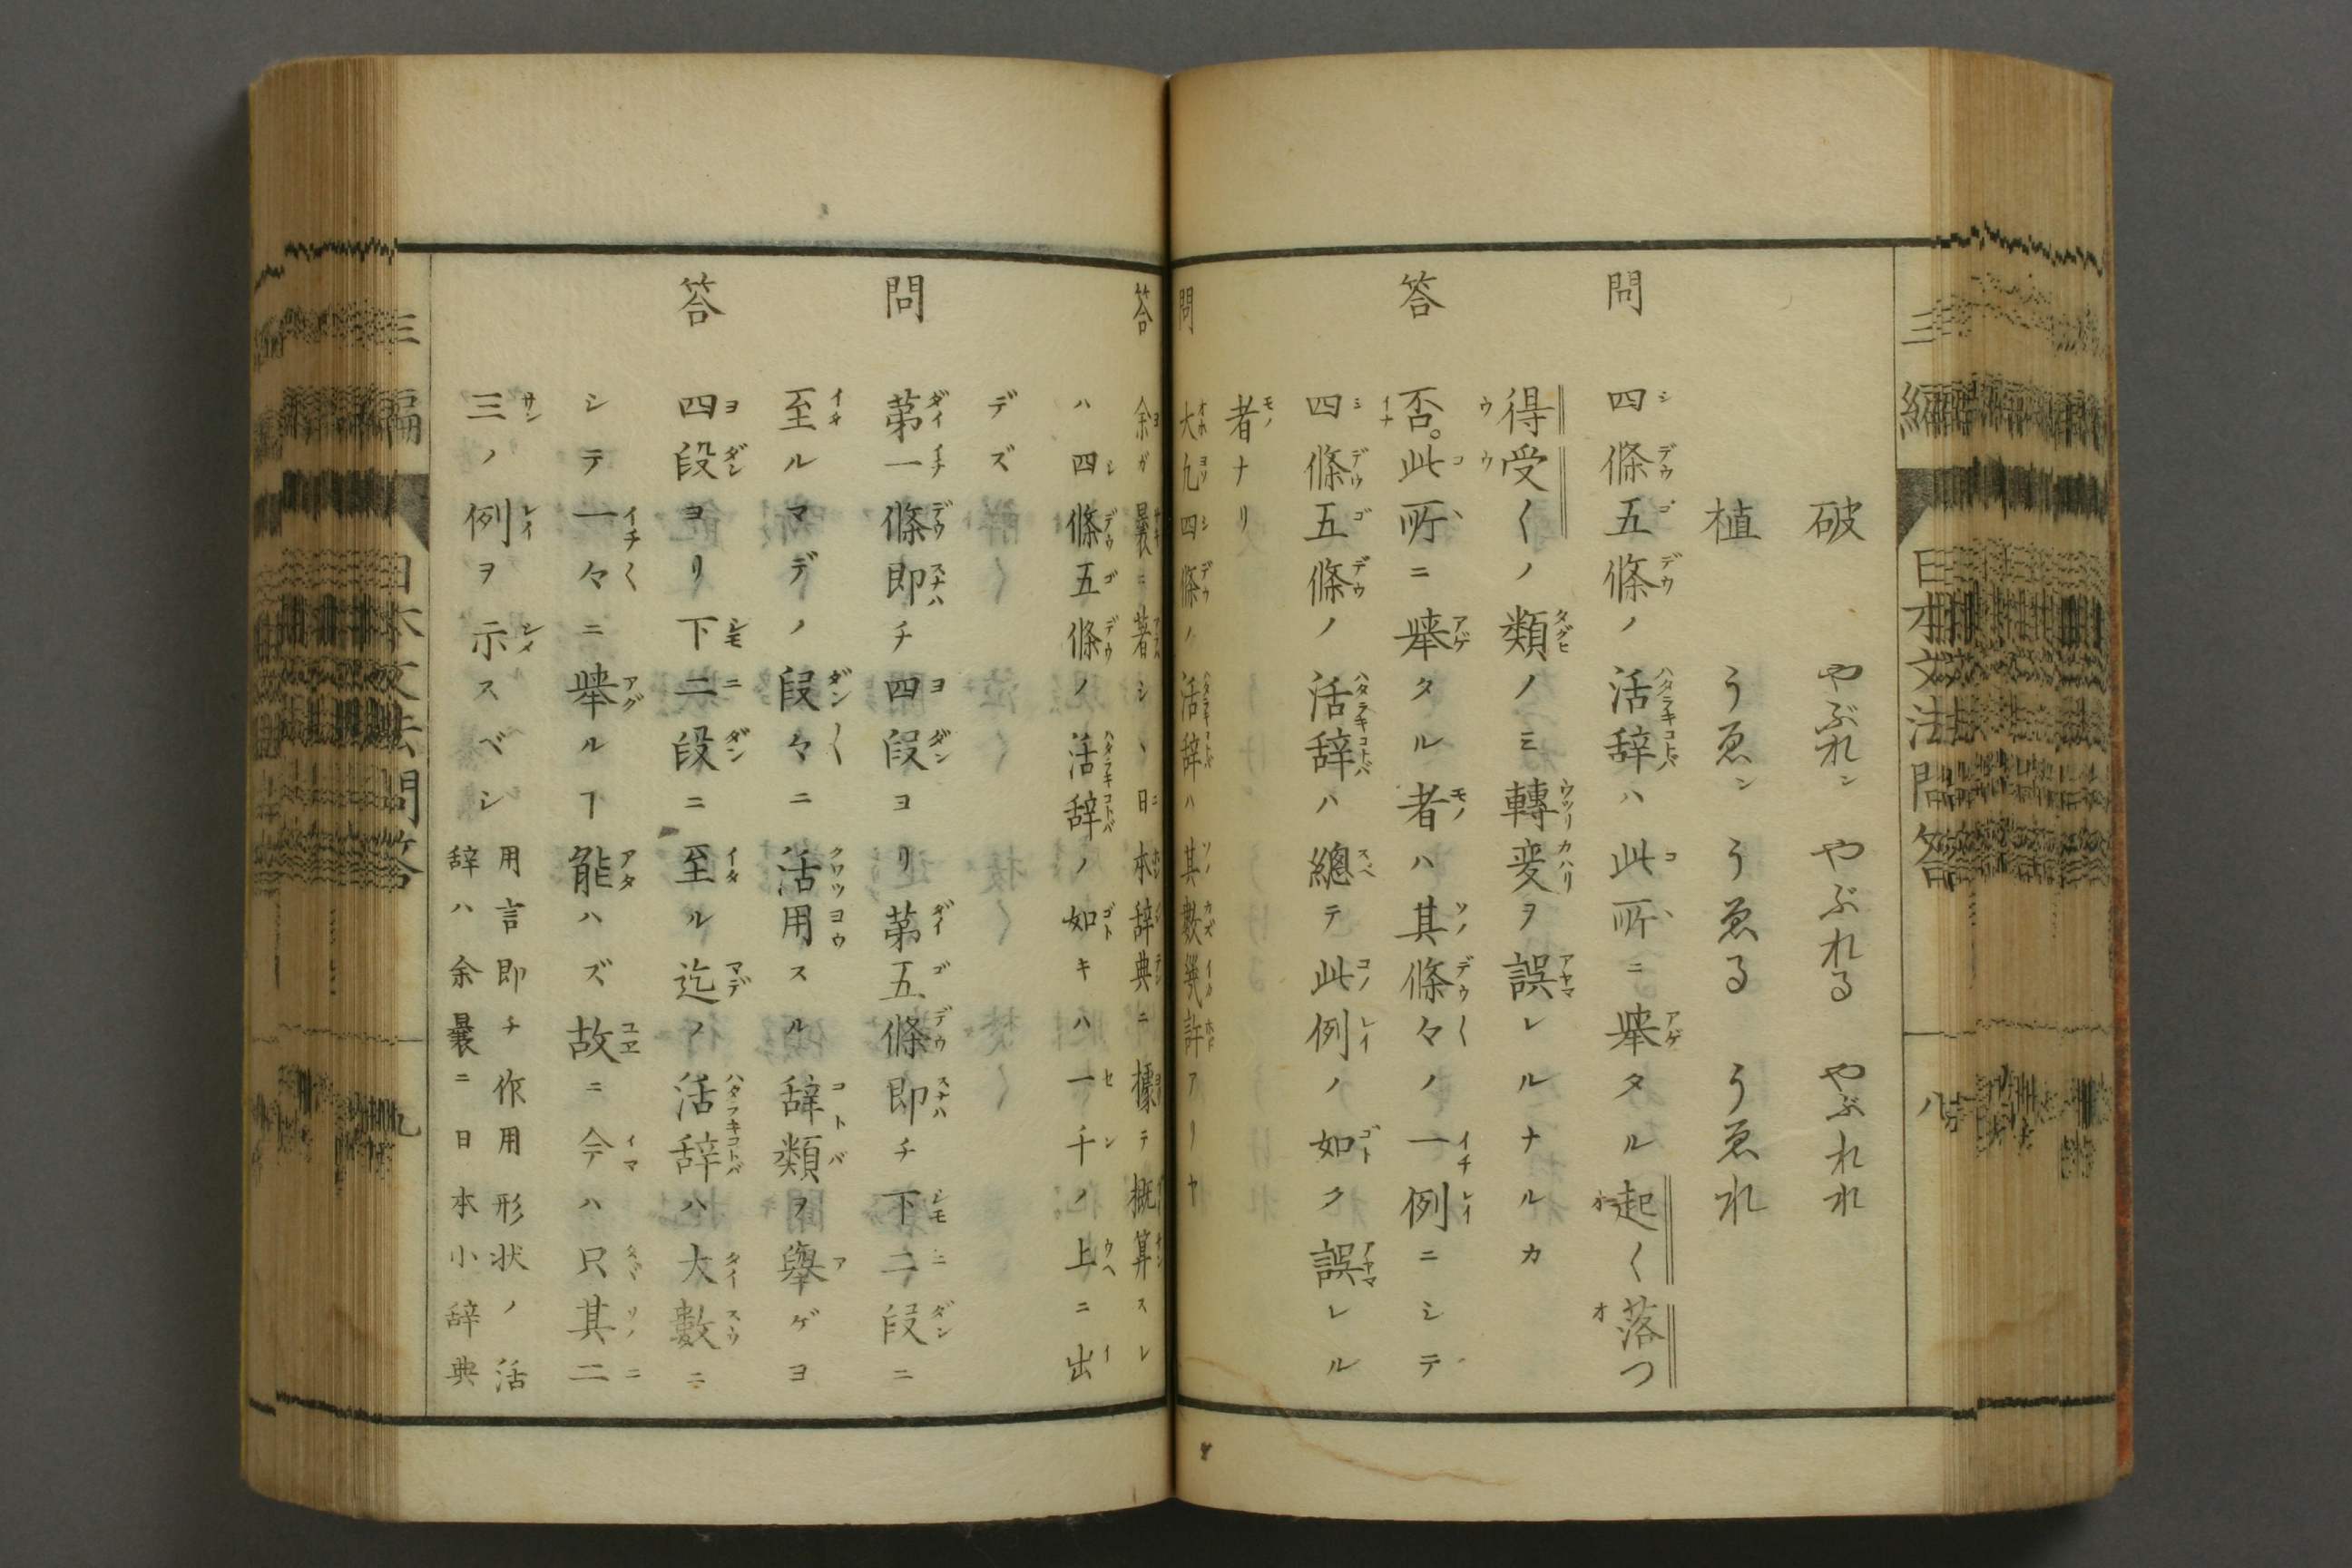 三編 日本文法問答 八
破 やぶれン やぶれる やぶれれ
植 うゑン うゑる うゑれ
問 四條五條ノ活辞ハ此所ニ擧タル起く落つ
得受くノ類ノミ轉変ヲ誤レルナルカ
答 否。此所ニ擧タル者ハ其條々ノ一例ニシテ
四條五條ノ活辞ハ總テ此例ノ如ク誤レル
者ナリ
問 大九四條ノ活辞ハ其數幾許アリヤ
答 余ガ曩ニ著シヽ日本辞典ニ據テ概算スレ
ハ四條五條ノ活辞ノ如キハ一千ノ上ニ出
デズ
問 第一條即チ四段ヨリ第五條即チ下二段ニ
至ルマデノ段々ニ活用スル辞類ヲ舉ゲヨ
答 四段ヨリ下二段ニ至ル迄ノ活辞ハ大數ニ
シテ一々ニ擧ルヿ能ハズ故ニ今ハ只其二
三ノ例ヲ示スベシ
用言即チ作用形状ノ活
辞ハ余曩ニ日本小辞典
三編 日本文法問答 九